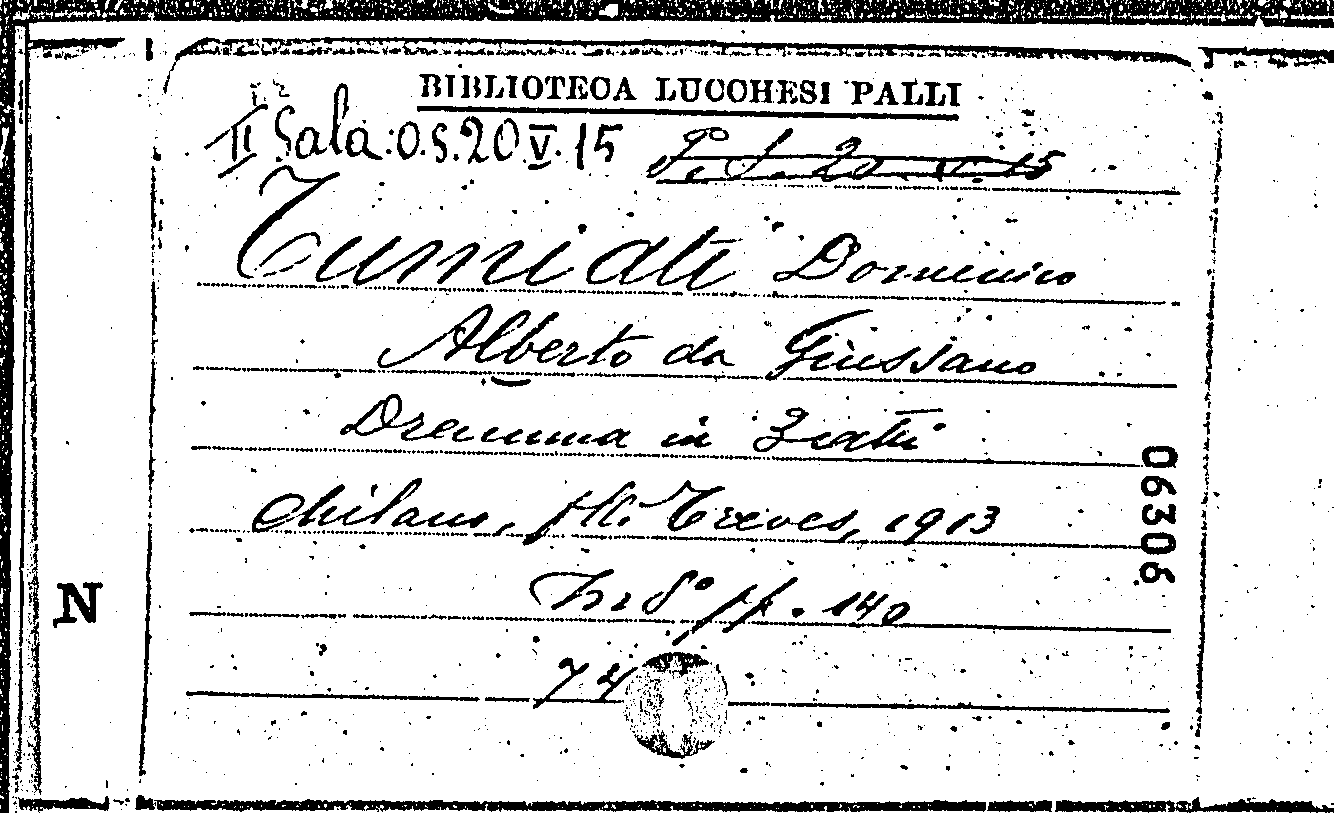 BIBLIOTECA LUCCHESI PALLI
II Sala: O.S. 20 V. 15 P. S. 20. V. 15
Tumiati Domenico
Alberto da Giussano
Dramma in 3 atti
Milano, flli. Treves, 1913
In 8° pp. 140
74
06306
N